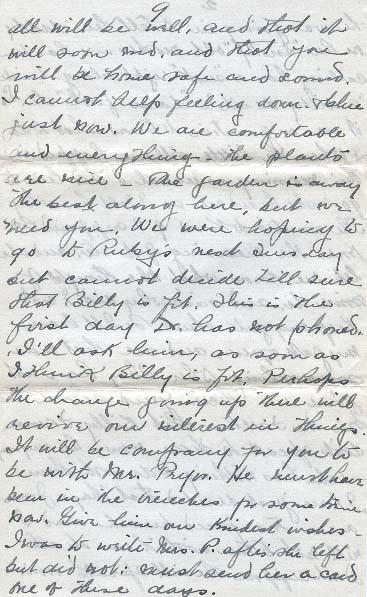 9
all will be well, and that it
will soon end, and that you
will be home safe and sound.
I cannot help feeling down & blue
just now. We are comfortable
and everything - the plants
are nice - The garden is away
the best along here, but we
need you. We were hoping to
go to Ruby's next Tuesday
but cannot decide till sure
that Billy is fit. This is the
first day Dr. has not phoned.
I'll ask him, as soon as
I think Billy is fit. Perhaps
the change going up there will
revive our interest in things.
It will be company for you to
be with Mr. Pryor. He must have
been in the trenches for some time
now. Give him our kindest wishes -
I was to write Mrs. P. after she left
but did not: must send her a card
one of these days.